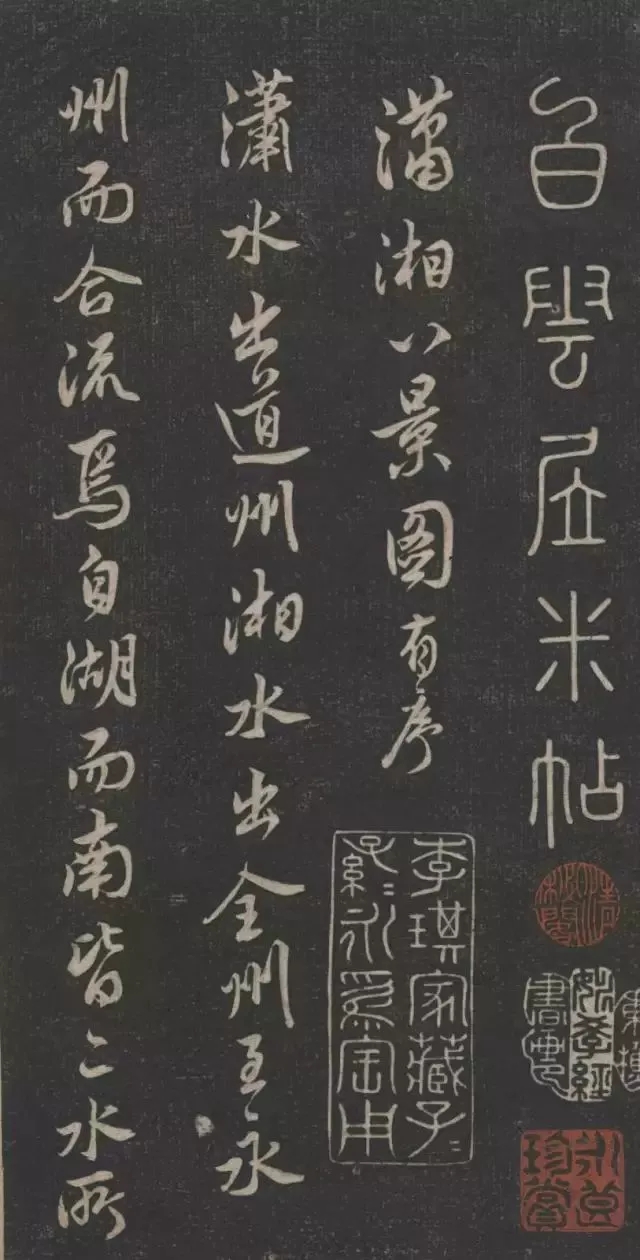 白雲居米帖
瀟湘八景图有序
瀟水出道州湘水出全州至永
州而合流焉自湖而南皆二水所
李琪家藏子=
孫=永爲宝用